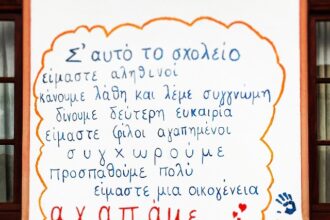 Σ' αυτό το σχολείο
είμαστε αληθινοί
κάνουμε λάθη και λέμε συγγνώμη
δίνουμε δεύτερη ευκαιρία
είμαστε φίλοι αγαπημένοι
συγχωρούμε
προσπαθούμε πολύ
είμαστε μια οικογένεια
αγαπάμε